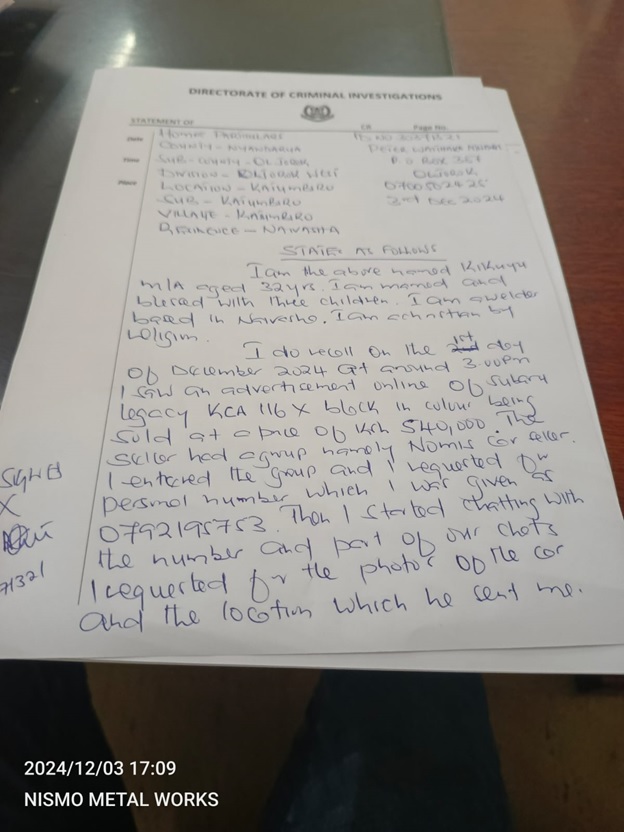 DIRECTORATE OF CRIMINAL INVESTIGATIONS
STATEMENT OF CR Page No.
Home PARTICULARS
COUNTY - NYANDARUA
SUB-COUNTY - OLJOROK P.O BOX 367
DIVISION - OLJOROK WEST OLJOROK
LOCATION - KAIMBARO
SUB - KAIMBARO 3rd DEC 2024
VILLAGE - KAIMBARO
RESIDENCE - NAIVASHA
STATES AS FOLLOWS
I am the above named Kikuyu
M/A aged 32yrs. I am married and
blessed with three children. I am a welder
based in Naivasha. I am a christian by
religion.
I do recall on the 1st day
of December 2024 at around 3.00pm
I saw an advertisement online of subaru
legacy KCA 116X black in colour being
sold at a price of Ksh 540,000. The
seller had a group namely Nomis car seller.
I entered the group and I requested for
personal number which I was given as
0792195753. Then I started chatting with
the number and part of our chats
I requested for the photos of the car
and the location which he sent me.
SIGNED
X
71321
2024/12/03 17:09
NISMO METAL WORKS